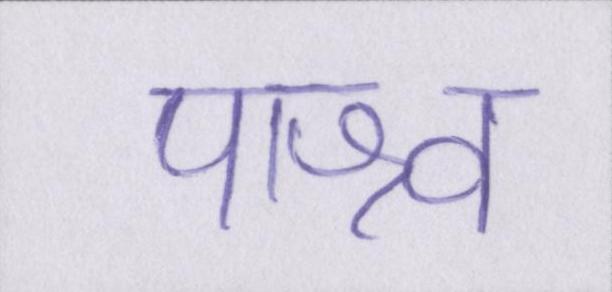 पाश्व